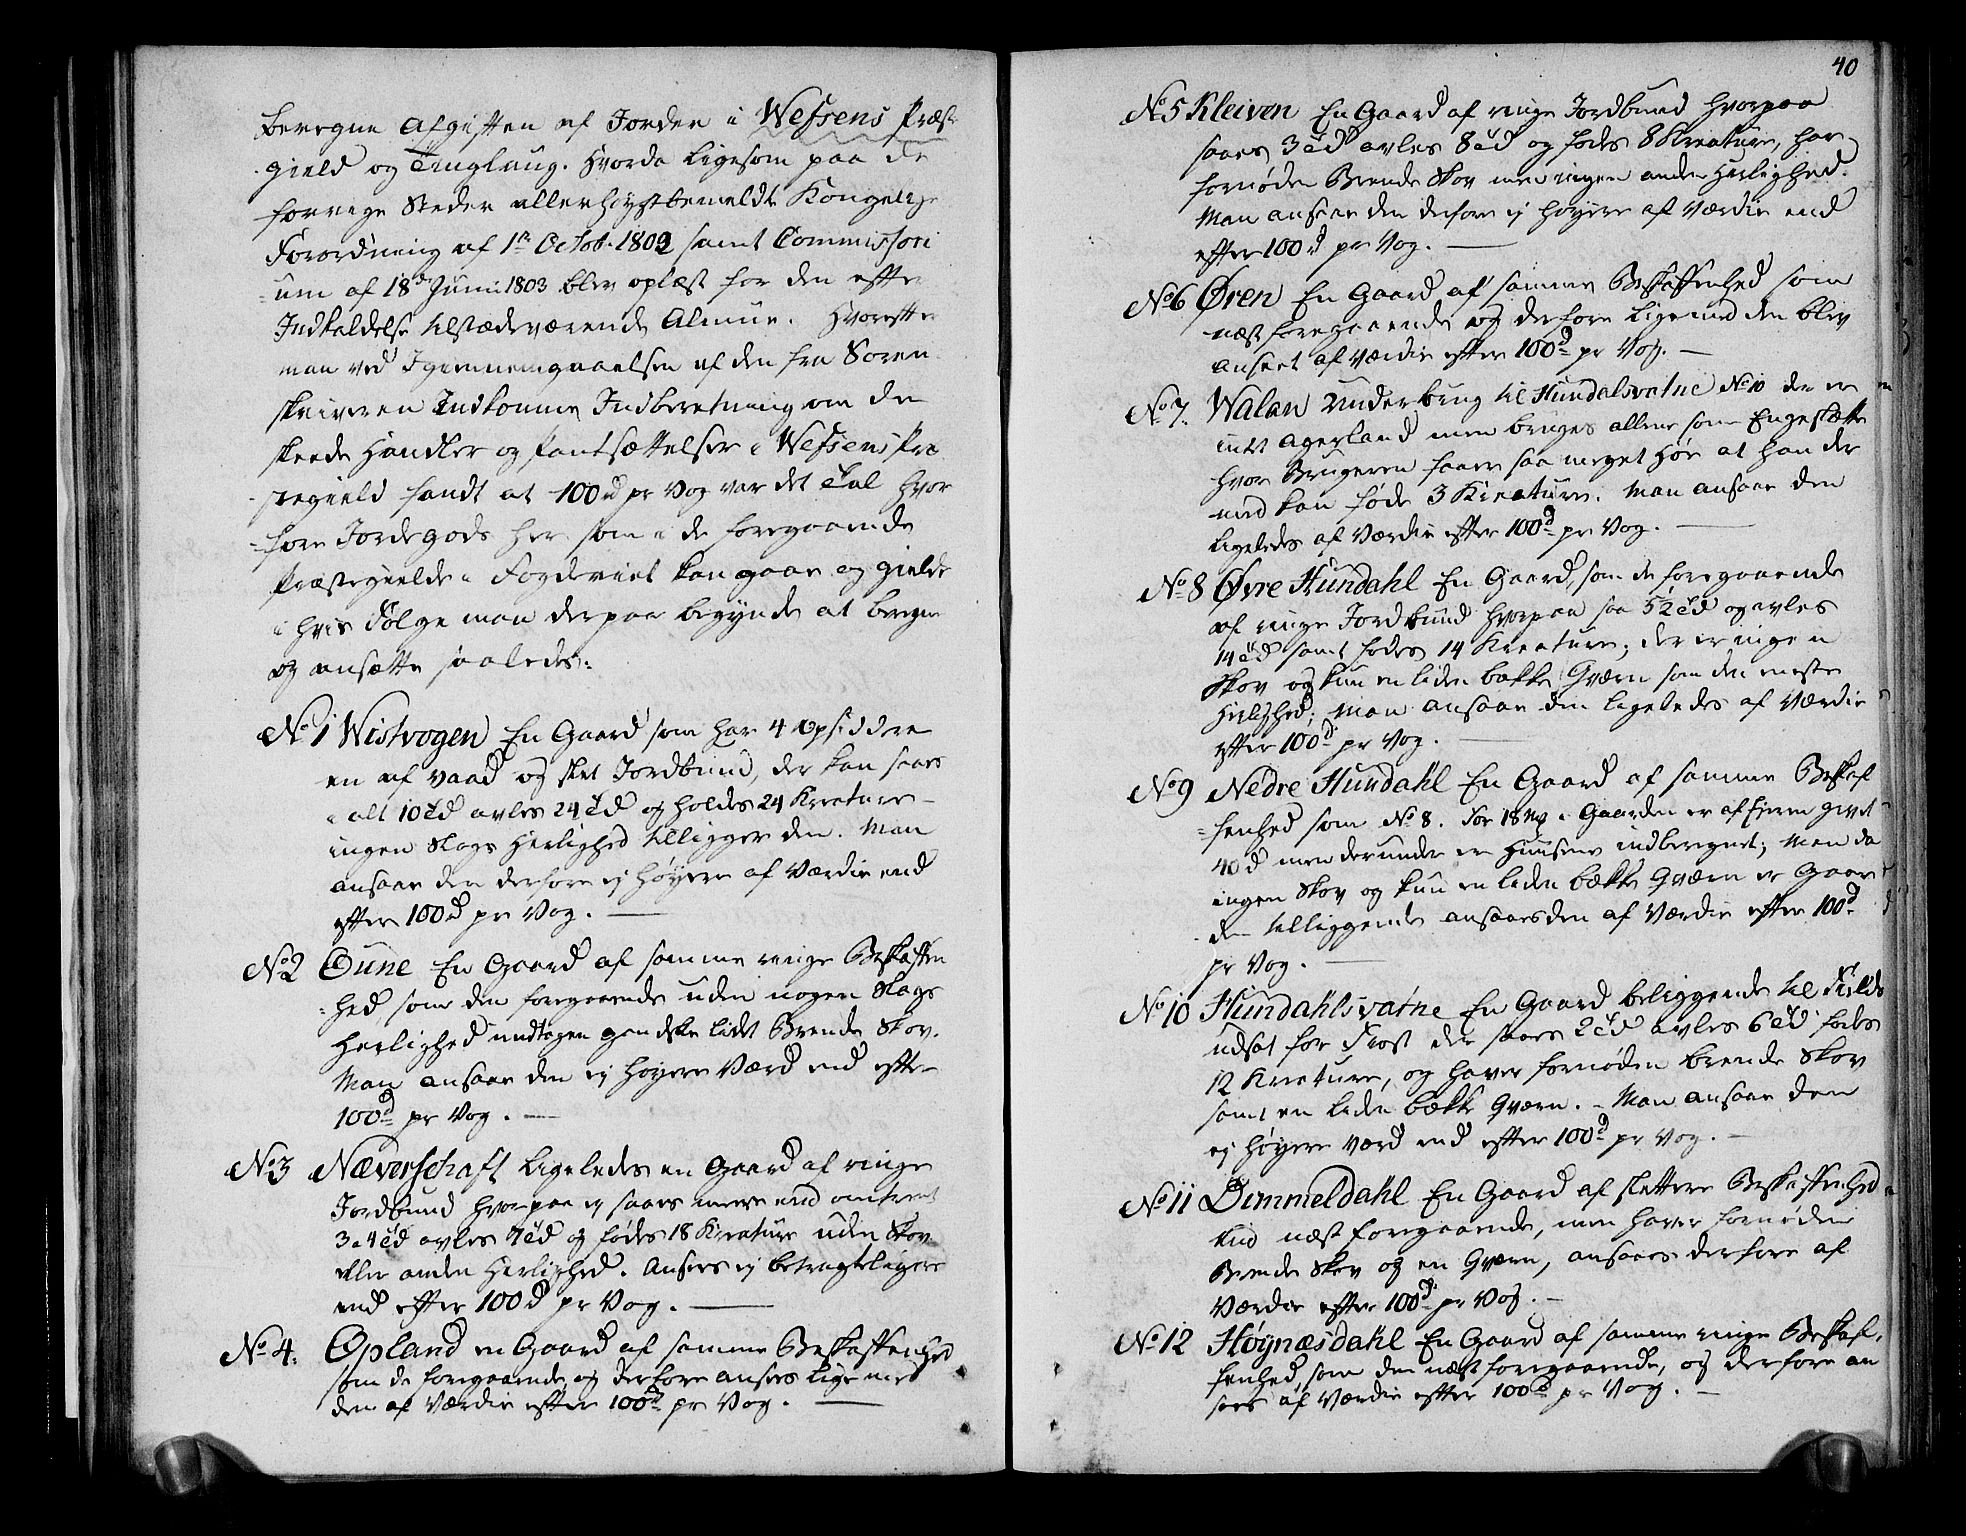 beregne Afgiften af Jorden i Wefsens Præste
gield og Tinglaug. Hvorda ligesom paa de
forrige Steder allerhøystbemeldte Kongelige
Forordning af 1te Octob. 1802 samt Commissori
um af 18d Juni 1803 blev oplæst for den efter
Indkaldelse tilstædeværende Almue. Hvorefter
man ved Igiennemgaaelsen af den fra Soren
skriveren Indkomne Indberetning om de
skeede Handler og Pantsættelser i Wefsens Præ
stegield fandt at 100 d pr Vog var det Tal hvor
fore Jordegods her som i de foregaaende
Præstegielde i Fogderiet kan gaae og gielde
i hvis Følge man derpaa begyndte at beregne
og ansætte saaledes:
No 1 Wistvogen En Gaard som har 4 Opsiddere
en af vaad og slet Jordbund, der kan saaes
i alt 10 Td avles 24 Td og holdes 24 Kreature
ingen Slags Herlighed tilligger den. Man
ansaae den derfore ej høyere af Værdie end
efter 100 d pr Vog.
No 2 Oune En Gaard af samme ringe Beskaffen
hed, som den foregaaende uden nogen Slags
Herlighed undtagen gandske lidet Brende Skov.
Man ansaae den ej høyere Værd end efter
100 d pr Vog.
No 3 Næverschaft ligeledes en Gaard af ringe
Jordbund hvorpaa ej saaes meere end omtrent
3 a 4 Td avles 7 Td og fødes 18 Kreature uden Skov
eller anden Herlighed. Ansees ej betragteligere
end efter 100 d pr Vog.
No 4. Opland en Gaard af samme Beskaffenhed
som de foregaaende og derfore ansees lige med
den af Værdie efter 100 d pr Vog.
40
No 5 Kleiven En Gaard af ringe Jordbund hvorpaa
saaes 3 Td avles 8 Td og fødes 8 Kreature, har
fornøden Brende Skov men ingen anden Herlighed.
Man ansaae den derfore ej høyere af Værdie end
efter 100 d pr Vog.
No 6 Øren En Gaard af samme Beskaffenhed som
næstforegaaende og derfore lige med den blev
anseet af Værdie efter 100 d pr Vog.
No 7. Walan Underbrug til Hundalsvatne No 10 der er
intet Agerland men bruges allene som Engeslætte
hvor Brugeren faaer saa meget Høe at han der
med kan føde 3 Kreature. Man ansaae den
ligeledes af Værdie efter 100 d pr Vog.
No 8 Øvre Hundahl En Gaard, som de foregaaende
af ringe Jordbund hvorpaa saaes 5½ Td og avles
14 Td samt fødes 14 Kreature; der er ingen
Skov og kun en liden bække Qværn som den eneste
Herlighed; Man ansaae den ligeledes af Værdie
efter 100 d pr Vog.
No 9 Nedre Hundahl En Gaard af samme Beskaf
fenhed som No 8. For 18 Mk i Gaarden er af Eieren givet
40 d men derunder er Huusene indberegnet; Man da
ingen Skov og kun en liden bække Qværn er Gaar
den tilliggende ansaaes den af Værdie efter 100 d
pr Vog.
No 10 Hundahlsvatne En Gaard beliggende til Fields
udsat for Frost der saaes 2 Td avles 6 Td fødes
12 Kreature, og haver fornøden brende Skov
samt en liden bække Qværn. - Man ansaae den
ej høyere værd end efter 100 d pr Vog.
No 11 Dimmeldahl En Gaard af slettere Beskaffenhed
end næst foregaaende, men haver fornøden
Brende Skov og en Qværn, ansaaes derfore af
Værdie efter 100 d pr Vog.
No 12 Høynæsdahl En Gaard af samme ringe Beskaf,
fenhed, som den næst foregaaende, og derfore an
sees af Værdie efter 100 d pr Vog.